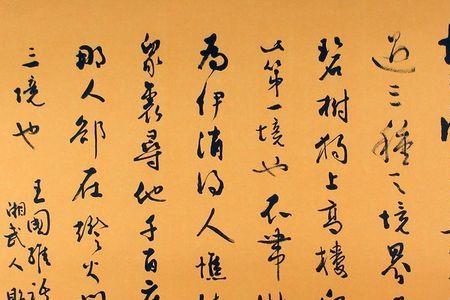 过三種之境界
碧樹独上高樓
此第一境也衣帶
為伊消得人憔
眾裏尋他千百度
那人卻在燈火
三境也
王國維
湘武人